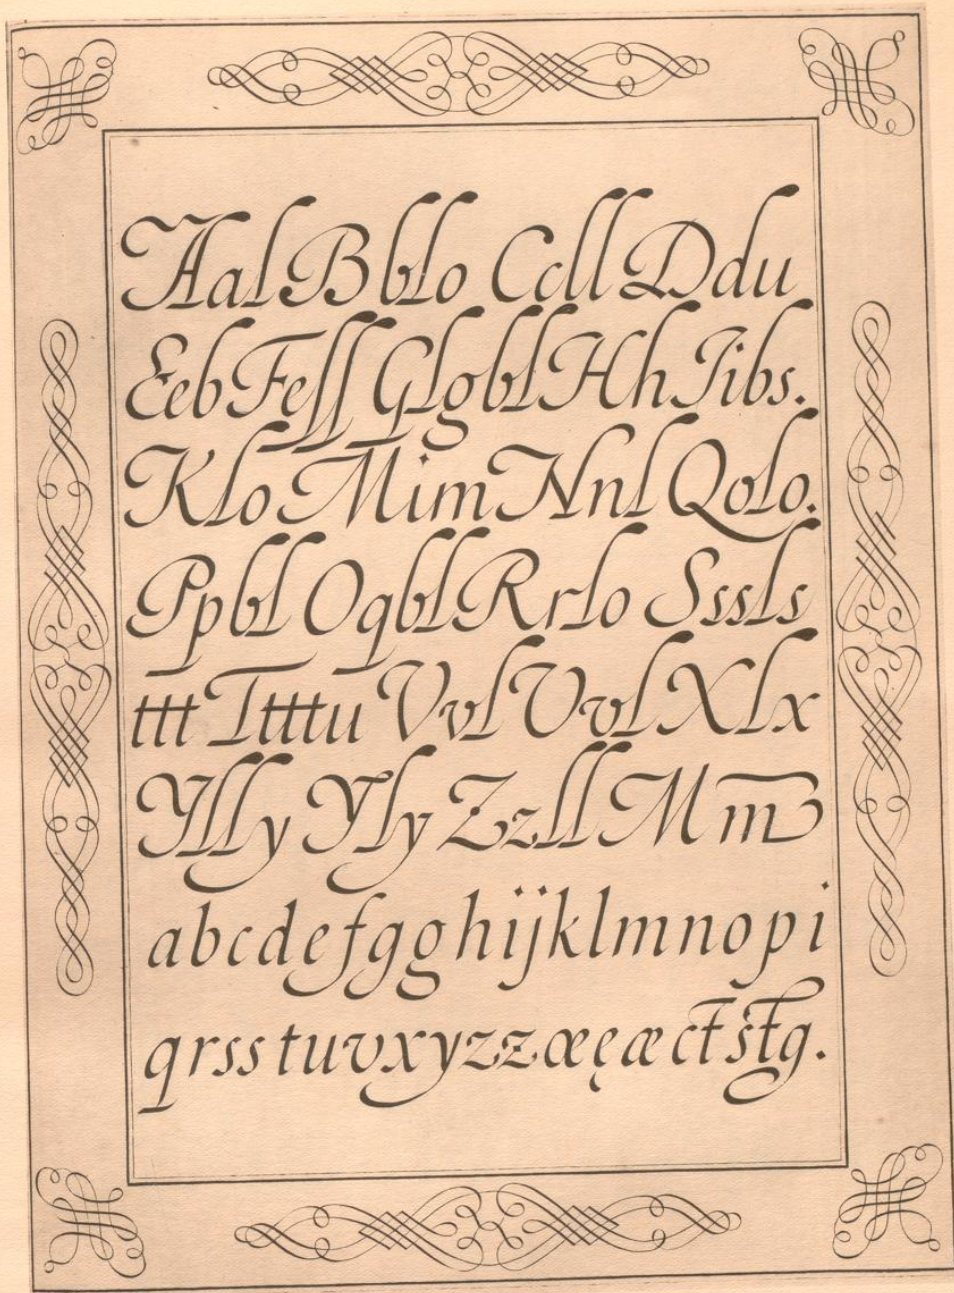 Aal Bblo Ccll Ddu
Eeb Feſſ Glgbl Hh Iibs.
Klo Mim Nnl Qolo.
Ppbl Oqbl Rrlo Sssls
ttt Ttttu Vvl Uvl Xlx
Ylly Yly Zzll M m̅
abcdefgghijklmnopi
qrsstuvxyzzœęæctstg.